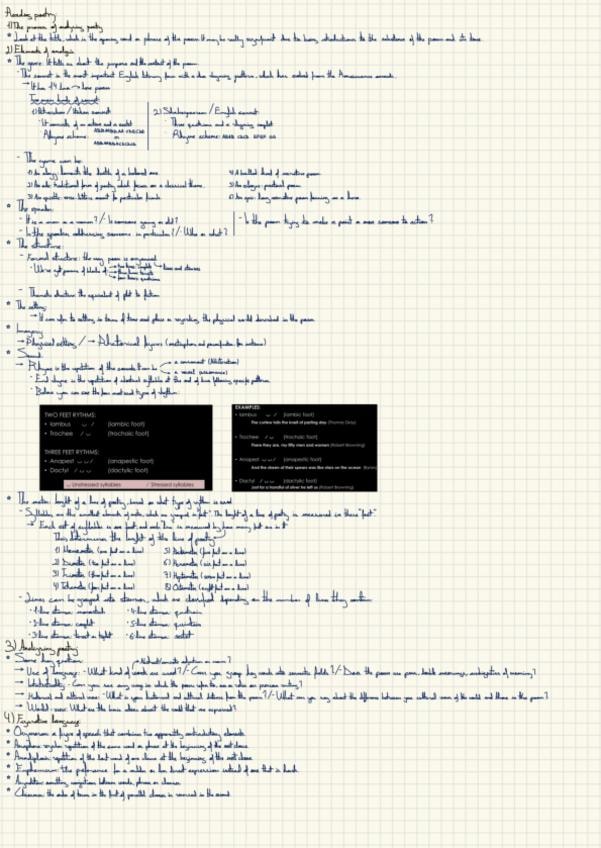 Reading poetry:
1) The process of analysing poetry
* Look at the title, which is the opening word or phrase of the poem. It may be really significant due to being introductory to the substance of the poem and its tone.
2) Elements of analysis
* The genre: It tells us about the purpose and the context of the poem.
- The sonnet is the most important English literary form with a clear rhyming pattern, which has existed from the Renaissance onwards.
→ It has 14 lines → love poem
Two main kinds of sonnet
1) Petrarchan / Italian sonnet
· It consists of an octave and a sestet
· Rhyme scheme:
or
2) Shakespearean / English sonnet
· Three quatrains and a rhyming couplet
· Rhyme scheme: ABAB CDCD EFEF GG
- The genre can be:
1) An elegy: laments the death of a beloved one
2) An ode: traditional form of poetry which focuses on a classical theme.
3) An epistle: verse letters meant for particular friends
4) A ballad: kind of narrative poem
5) An eclogue: pastoral poem
6) An epic: long narrative poem focusing on a hero.
* The speaker:
- Is it a man or a woman? /- Is someone young or old?
- Is the speaker addressing someone in particular? /- Who or what?
- Is the poem trying to make a point or move someone to action?
* The structure:
- Formal structure: the way poem is organised
- Thematic structure: the equivalent of plot to fiction
* The setting:
→ It can refer to setting in terms of time and place or regarding the physical world described in the poem
* Imagery:
→ Physical setting / → Rhetorical figures (metaphors and personification for instance)
* Sound:
→ Rhyme is the repetition of the sounds. It can be
→ a consonant (Alliteration)
→ a vowel (assonance)
· End rhyme is the repetition of identical syllables at the end of lines following specific patterns
· Below you can see the four most used types of rhythm:
TWO FEET RYTHMS:
• Iambus ◡ / (iambic foot)
• Trochee / ◡ (trochaic foot)
THREE FEET RYTHMS:
• Anapest ◡ ◡ / (anapestic foot)
• Dactyl / ◡ ◡ (dactylic foot)
◡ Unstressed syllables / Stressed syllables
EXAMPLES:
• Iambus ◡ / (iambic foot)
The curfew tolls the knell of parting day (Thomas Gray)
• Trochee / ◡ (trochaic foot)
There they are, my fifty men and women (Robert Browning)
• Anapest ◡ ◡ / (anapestic foot)
And the sheen of their spears was like stars on the ocean (Byron)
• Dactyl / ◡ ◡ (dactylic foot)
Just for a handful of silver he left us (Robert Browning)
* The meter: length of a line of poetry, based on what type of rhythm is used
- Syllables are the smallest elements of meter, which are grouped in "feet". The length of a line of poetry is measured in these "feet"
→ Each set of syllables is one foot, and each line is measured by how many feet are in it
This determines the length of the line of poetry
1) Monometer (one foot on a line)
2) Dimeter (two feet on a line)
3) Trimeter (three feet on a line)
4) Tetrameter (four feet on a line)
5) Pentameter (five feet on a line)
6) Hexameter (six feet on a line)
7) Heptameter (seven feet on a line)
8) Octameter (eight feet on a line)
- Lines can be grouped into stanzas, which are classified depending on the number of lines they contain
· 1-line stanza: monostich
· 2-line stanza: couplet
· 3-line stanza: tercet or triplet
· 4-line stanza: quatrain
· 5-line stanza: quintain
· 6-line stanza: sestet
3) Analysing poetry:
* Some key questions:
→ Use of language: - What kind of words are used? /- Can you group key words into semantic fields? /- Does the poem use puns, double meanings, ambiguities of meaning?
→ Intertextuality: - Can you see any ways in which the poem refers to, uses or relies on previous writing?
→ Worldview: What are the basic ideas about the world that are expressed?
4) Figurative language:
* Oxymoron: a figure of speech that combines two apparently contradictory elements.
* Anaphora: regular repetition of the same word or phrase at the beginning of the next clause
* Anadiplosis: repetition of the last word of one clause at the beginning of the next clause
* Euphemism: the preference for a milder or less direct expression instead of one that is harsh.
* Asyndeton: omitting conjunctions between words, phrases or clauses
* Chiasmus: the order of terms in the first of parallel clauses is reversed in the second.